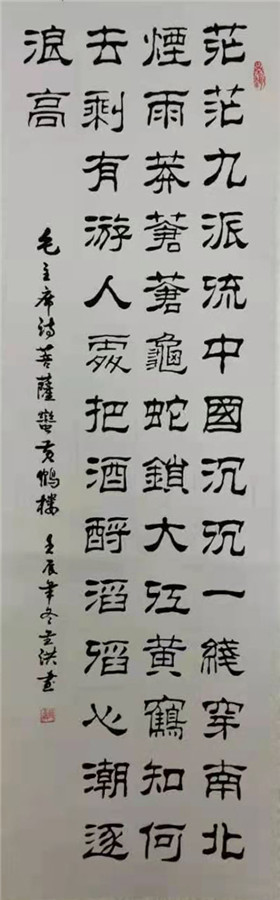 茫茫九派流中國沉沉一綫穿南北
煙雨莽蒼蒼龜蛇鎖大江黃鶴知何
去剩有游人處把酒酹滔滔心潮逐
浪高
毛主席詩菩薩蠻黄鶴樓 壬辰年冬洪書